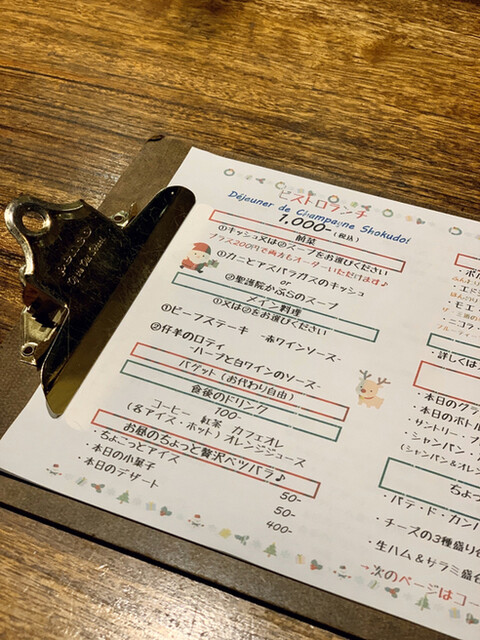 ビストロランチ
Déjeuner de Champagne Shokudo!
1,000-(税込)
前菜
①キッシュ又は②スープをお選びください
プラス200円で両方もオーダーいただけます♪
①カニとアスパラガスのキッシュ
or
②聖護院かぶらのスープ
メイン料理
①又は②をお選びください
①ビーフステーキ -赤ワインソース-
②仔羊のロティ
-ハーブと白ワインのソース-
バゲット(お代わり自由)
食後のドリンク
100-
コーヒー 紅茶 カフェオレ
(各アイス・ホット)オレンジジュース
お昼のちょっと贅沢ベツバラ♪
ちょこっとアイス 50-
・本日の小菓子 50-
・本日のデザート 400-
・エド
・モエ
・ニコラ
・詳しくは
本日のクラ
・本日のボトル
・サントリー・プ
・シャンパン・
(シャンパン&オレン
ちょ
・パテ・ド・カンパ
・チーズの3種盛り合
・生ハム&サラミ盛合
→次のページはコー